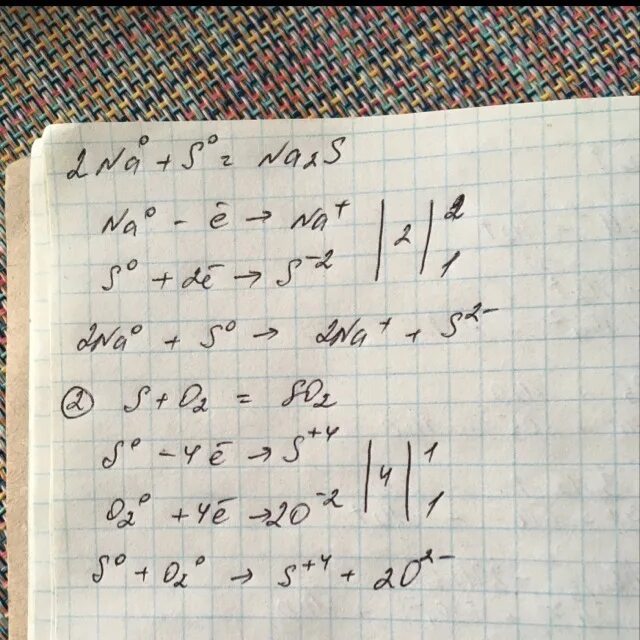 2Na⁰ + S⁰ = Na₂S
Na⁰ - ē → Na⁺ | 2 | 2
S⁰ + 2ē → S⁻² | 1
2Na⁰ + S⁰ → 2Na⁺ + S²⁻
② S + O₂ = SO₂
S⁰ - 4ē → S⁺⁴ | 4 | 1
O₂⁰ + 4ē → 2O⁻² | 1
S⁰ + O₂⁰ → S⁺⁴ + 2O²⁻